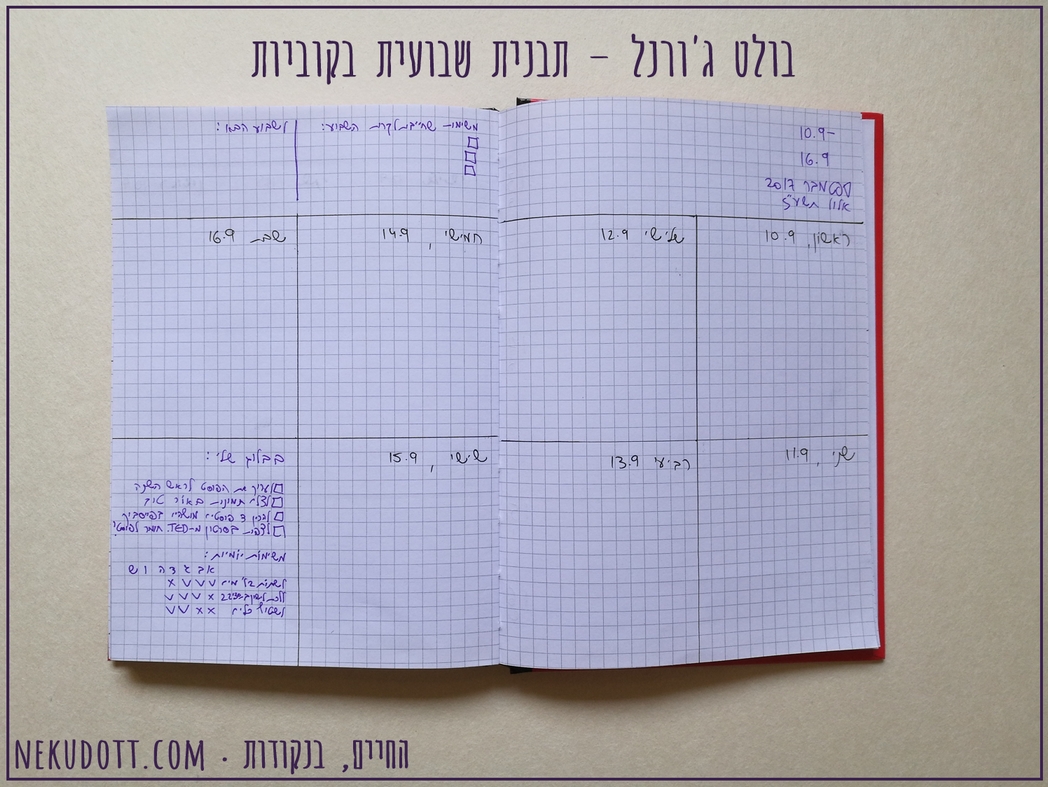 בולט ג'ורנל – תבנית שבועית בקוביות
10.9-
16.9
ספטמבר 2017
אלול תשע"ז
ראשון, 10.9
שלישי 12.9
שני, 11.9
רביעי 13.9
משימות שחייבת לקרות השבוע:
לשבוע הבא:
חמישי, 14.9
שבת 16.9
שישי, 15.9
בבלוג שלי:
לערוך את הפוסט לראש השנה
לצלם תמונות באור טוב
להכין 3 פוסטים מושריי בפייסבוק
לצפות בסרטון מ-TED. חומר לפוסט?
משימות יומיות:
א ב ג ד ה ו ש
לשתות 2 ל' מים V V V X
ללכת לישון ב-22:30 X V V V
לשטוף כלים X X V V
החיים, בנקודות · NEKUDOTT.COM